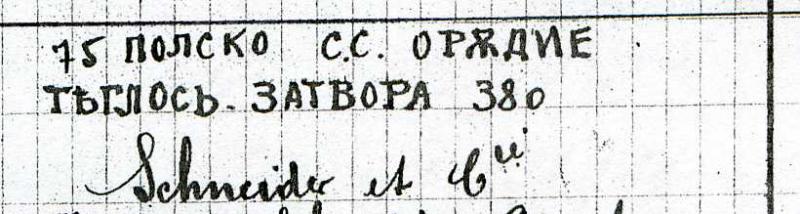 75 ПОЛСКО С.С. ОРѪДИЕ
ТѢГЛОСЬ. ЗАТВОРА 380
Schneider et Cie